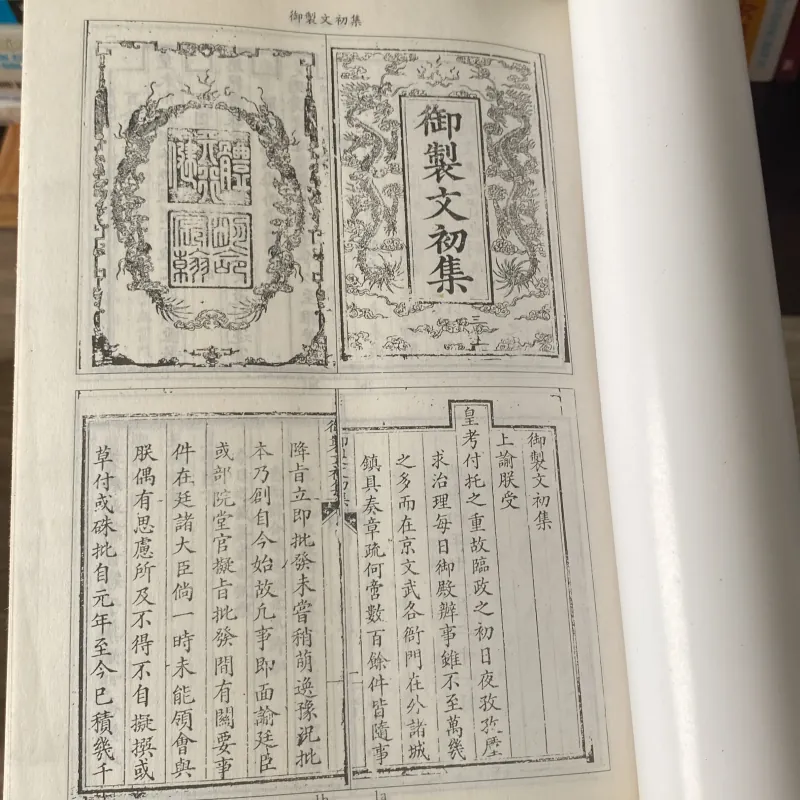 御製文初集
御製文初集
三
體天
行健
明命
宸翰
御製文初集
上諭朕受
皇考付托之重故臨政之初日夜孜孜歷
求治理每日御殿辦事雖不至萬幾
之多而在京文武各衙門在外諸城
鎮具奏章疏何啻數百餘件皆隨事
御製文初集
降旨立即批發未嘗稍萌逸豫況批
本乃創自今始故凡事即面諭廷臣
或部院堂官擬旨批發間有關要事
件在廷諸大臣倘一時未能領會與
朕偶有思慮所及不得不自擬撰或
草付或硃批自元年至今已積幾千